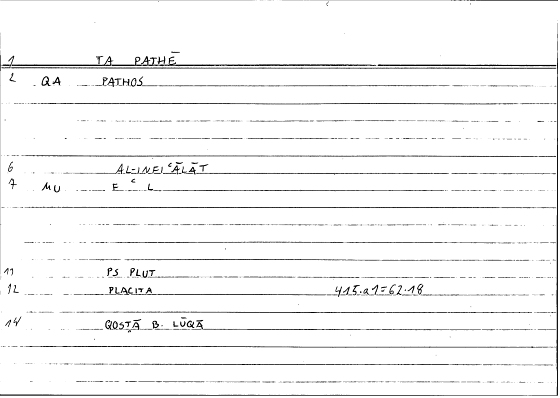 1 TA PATHĒ
2 QA PATHOS
6 AL-INFIʿĀLĀT
7 MU F ʿ L
11 PS PLUT
12 PLACITA 415.a1=62.18
14 QOSṬĀ B. LŪQĀ